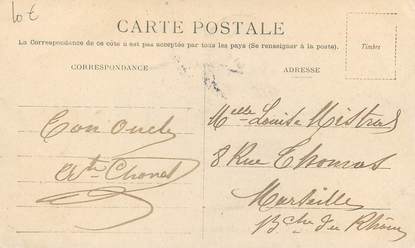 10 €
CARTE POSTALE
La Correspondance de ce côté n'est pas acceptée par tous les pays (Se renseigner à la poste).
Timbre
CORRESPONDANCE
ADRESSE
Ton Oncle
Melle Louise Mistral
8 Rue Thomas
Marseille
Bches du Rhône